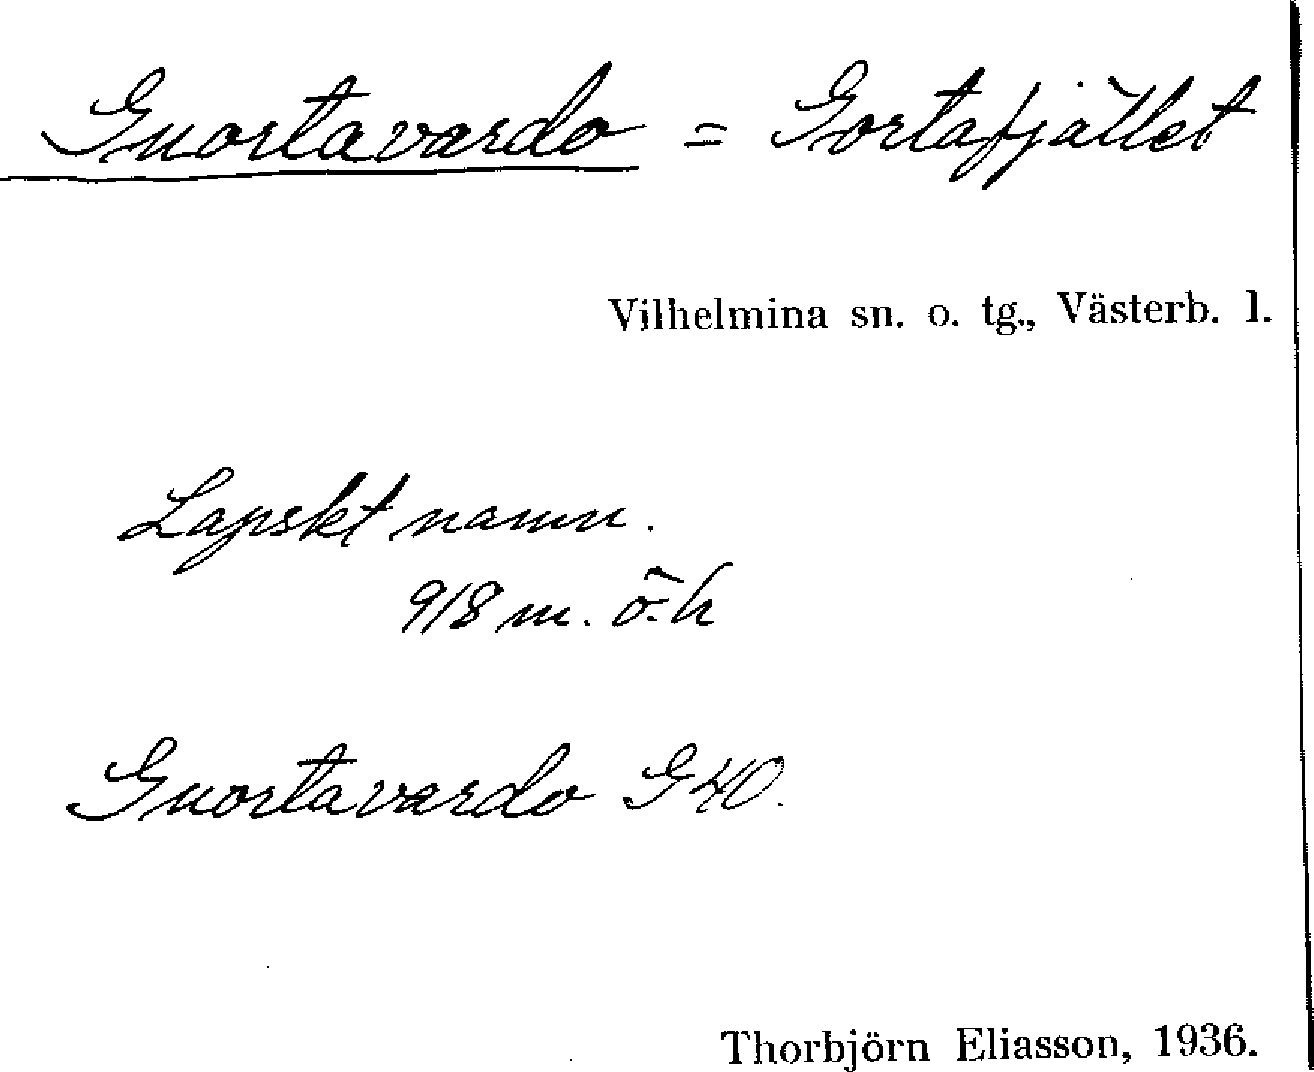 Guortavardo = Gortafjället
Vilhelmina sn. o. tg., Västerb. l.
Lapskt namn.
918 m. ö.h
Guortavardo G40.
Thorbjörn Eliasson, 1936.